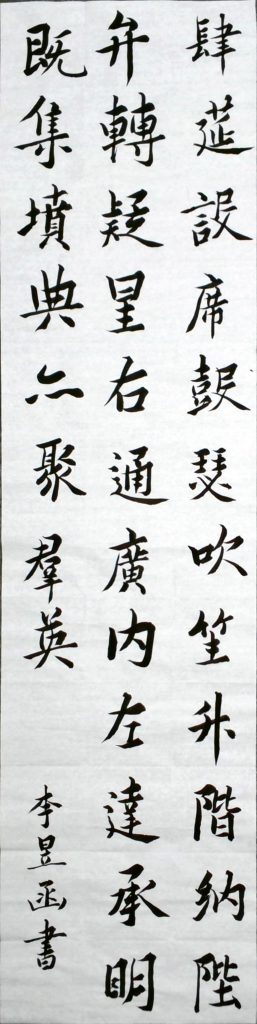 肆莚設席鼓瑟吹笙升階納陛
弁轉疑星右通廣內左達承明
既集墳典亦聚羣英
李昱函書